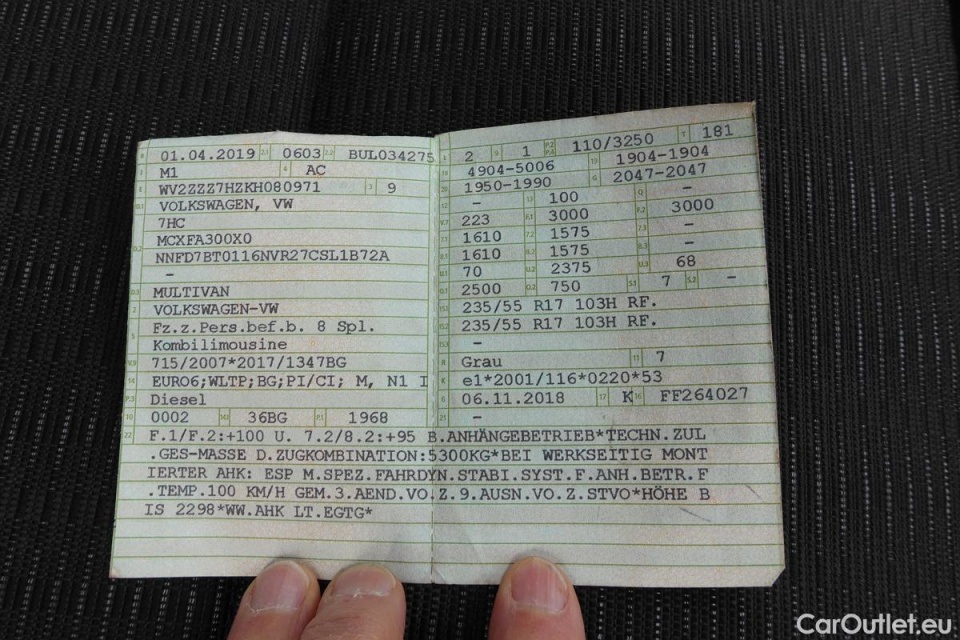 B 01.04.2019 2.1 0603 2.2 BUL034275
J M1 4 AC
E WV2ZZZ7HZKH080971 3 9
D.1 VOLKSWAGEN, VW
7HC
MCXFA300X0
D.2 NNFD7BT0116NVR27CSL1B72A
–
D.3 MULTIVAN
2 VOLKSWAGEN-VW
5 Fz.z.Pers.bef.b. 8 Spl.
Kombilimousine
V.9 715/2007*2017/1347BG
14 EURO6;WLTP;BG;PI/CI; M, N1 I
P.3 Diesel
10 0002 14.1 36BG P.1 1968
L 2 9 1 P.2 P.4 110/3250 T 181
18 4904-5006 19 1904-1904
20 1950-1990 G 2047-2047
12 – 13 100 Q –
V.7 223 F.1 3000 F.2 3000
7.1 1610 7.2 1575 7.3 –
8.1 1610 8.2 1575 8.3 –
U.1 70 U.2 2375 U.3 68
O.1 2500 O.2 750 S.1 7 S.2 –
15.1 235/55 R17 103H RF.
15.2 235/55 R17 103H RF.
15.3 –
R Grau 11 7
K e1*2001/116*0220*53
6 06.11.2018 17 K 16 FF264027
21 –
22 F.1/F.2:+100 U. 7.2/8.2:+95 B.ANHÄNGEBETRIEB*TECHN.ZUL
.GES-MASSE D.ZUGKOMBINATION:5300KG*BEI WERKSEITIG MONT
IERTER AHK: ESP M.SPEZ.FAHRDYN.STABI.SYST.F.ANH.BETR.F
.TEMP.100 KM/H GEM.3.AEND.VO.Z.9.AUSN.VO.Z.STVO*HÖHE B
IS 2298*WW.AHK LT.EGTG*
CarOutlet.eu